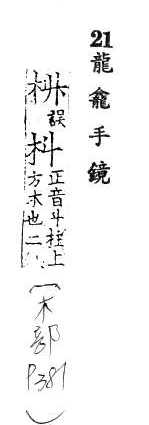 21龍龕手鏡
枓誤
枓正音斗柱上
方木也二
(木部
P381)